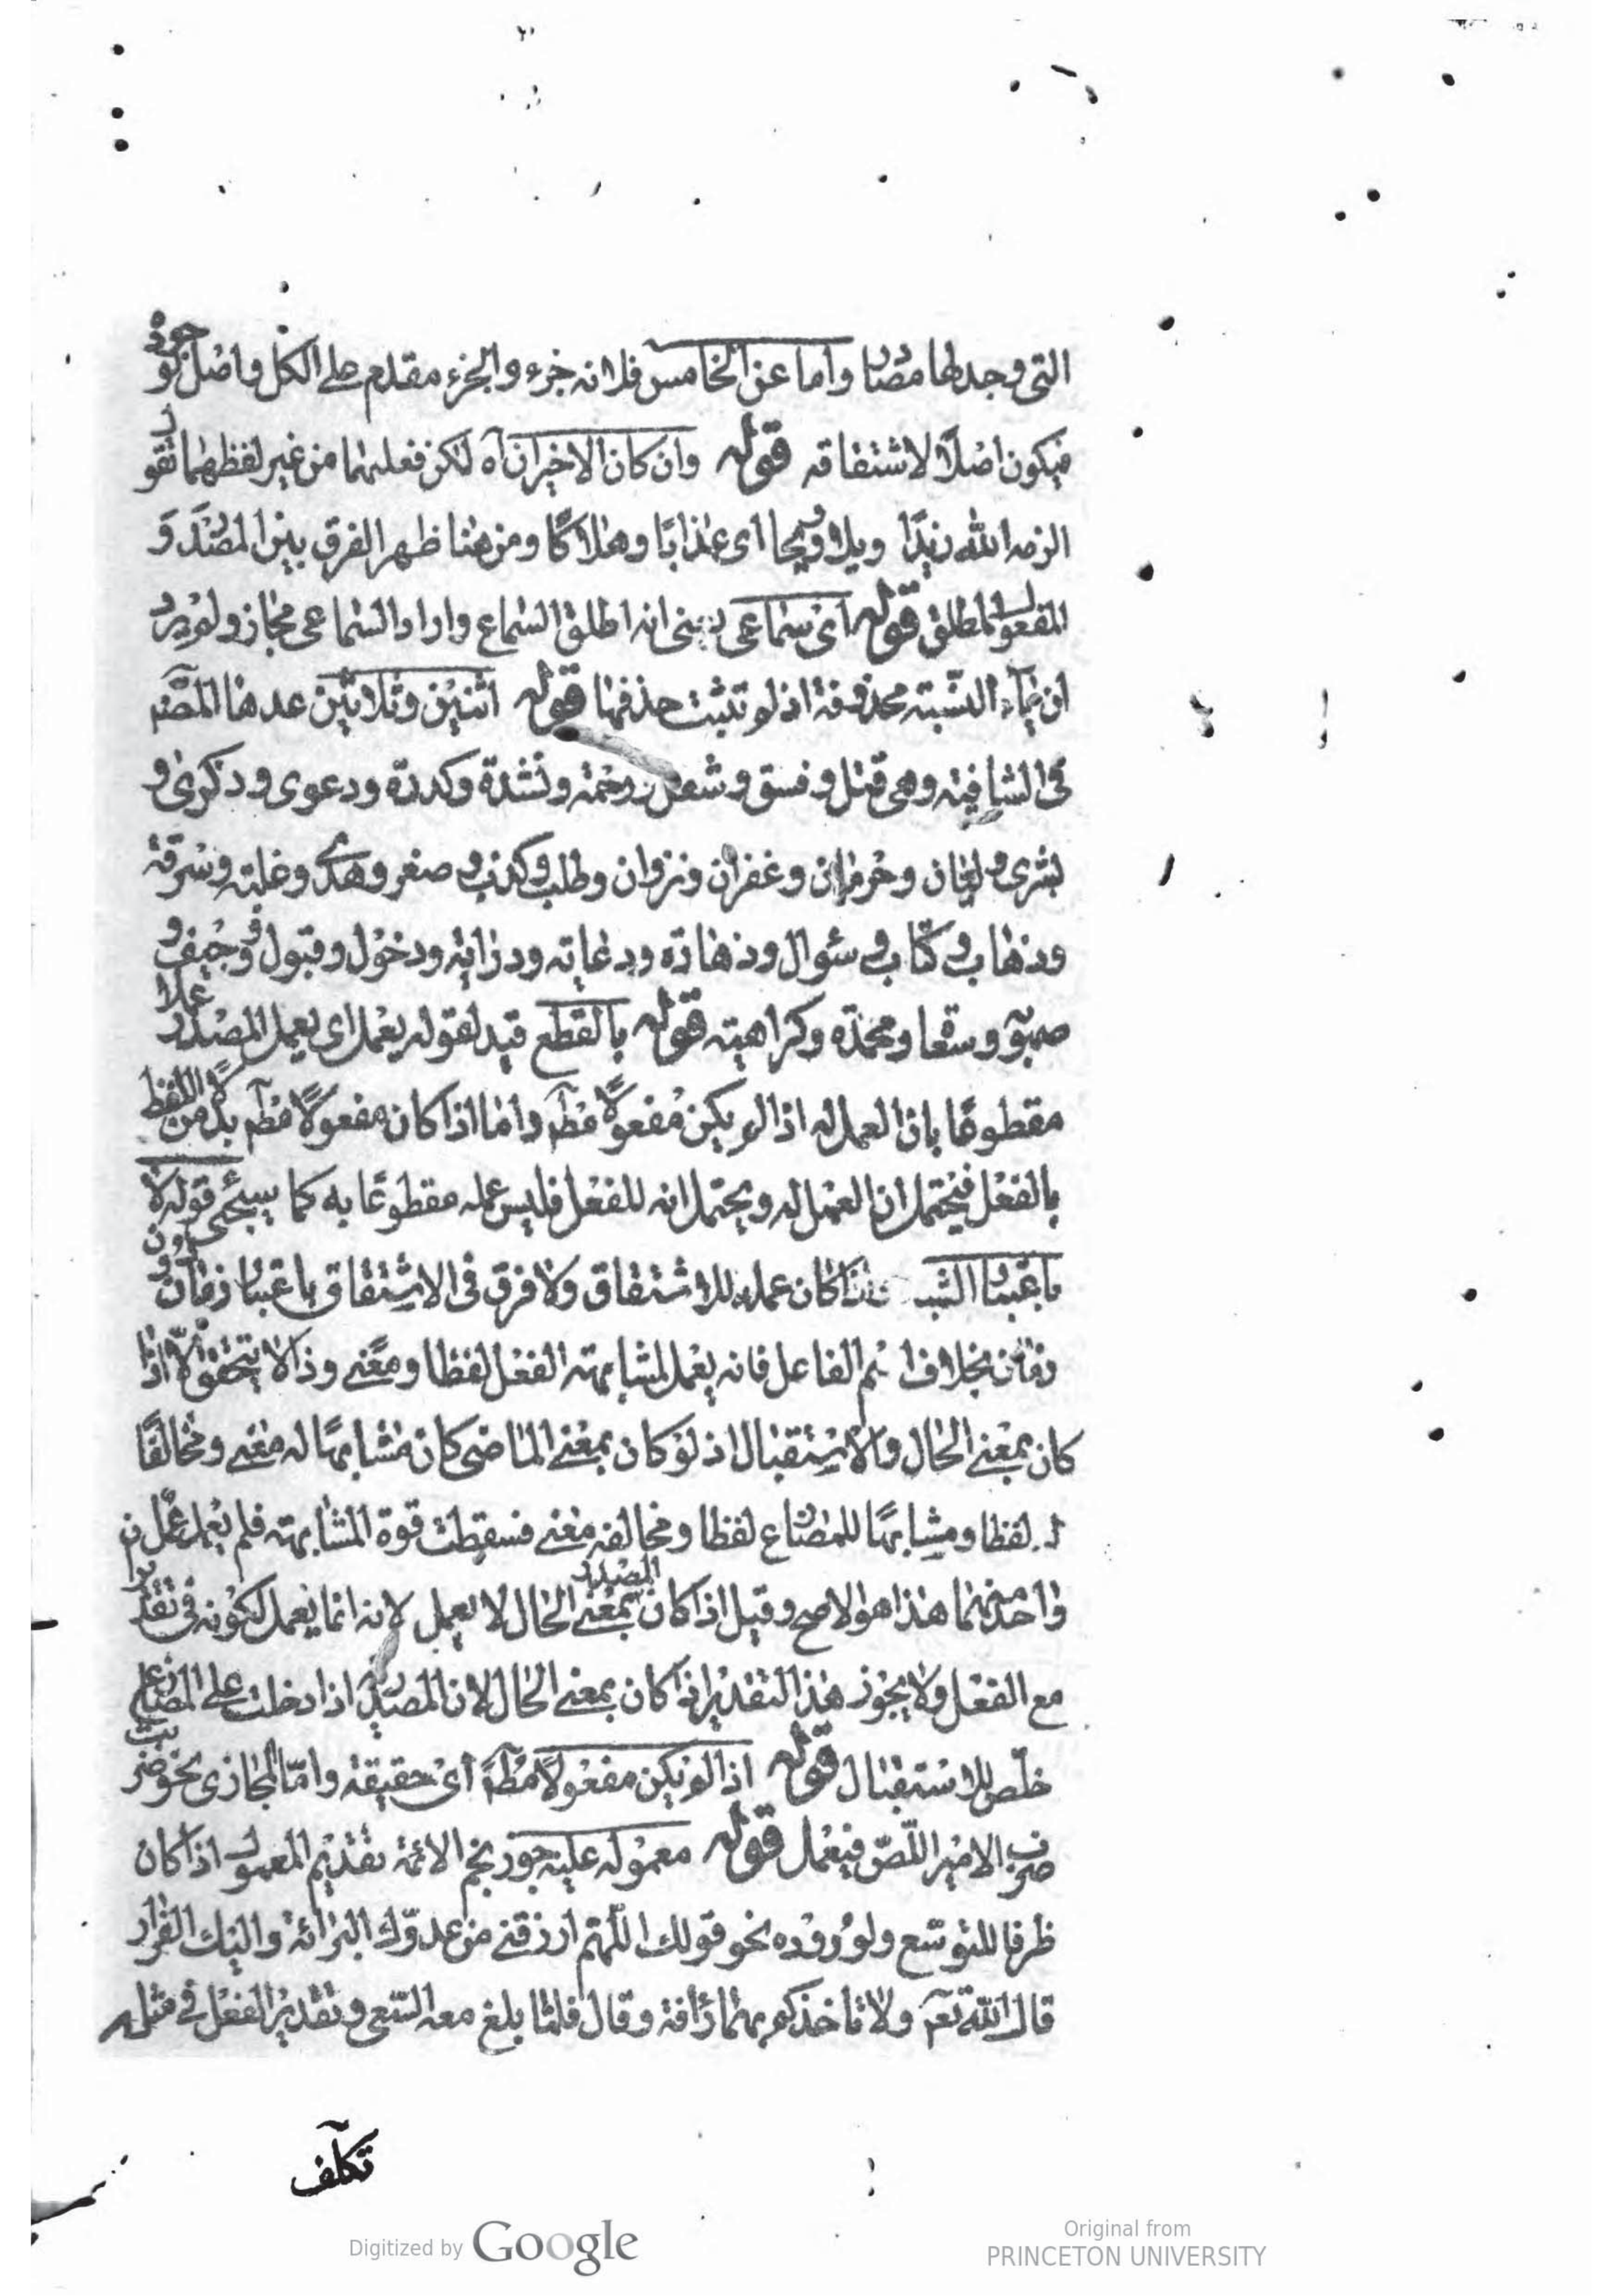 التي وجدلها مصاد واما عن الخامس فلانه جزء والجزء مقدم على الكل واصل لوجوده
فيكون اصلا لاشتقاقه قوله وان كان الاخيران آه لكن فعليهما من غير لفظهما تقول
الزمه الله زيدا ويلا وويحا اى عذابا وهلاكا ومن هنا ظهر الفرق بين المصدر و
المفعول المطلق قوله اى سماعى يعنى انه اطلق السماع واراد السماعى مجاز ولم يرد
ان ياء النسبة محذوفة اذ لم تثبت حذفها قوله اثنين وثلاثين عدها المصنف
فى الشافية وهى قتل وفسق وشغل ورحمة ونشدة وكدرة ودعوى وذكرى و
بشرى وليان وحرمان وغفران ونزوان وطلب وكذب وصغر وهدى وغلبة وسرقة
وذهاب وكتاب وسئوال وزهادة ودعاية ودراية ودخول وقبول ووجيف و
صهوبة ومحمدة وكراهية قوله بالقطع قيد لقوله يعمل اى يعمل المصدر عملا
مقطوعا بان العمل له اذا لم يكن مفعولا مط واما اذا كان مفعولا مط بدلا من اللفظ
بالفعل فيحتمل ان العمل له ويحتمل انه للفعل فليس عمله مقطوعا به كما سيجئ قوله لا
باعتبار الشبه كان عمله للاشتقاق ولا فرق فى الاشتقاق باعتبار زمان دون
زمان بخلاف اسم الفاعل فانه يعمل لمشابهته الفعل لفظا ومعنى وذا لا يتحقق الا اذا
كان بمعنى الحال والاستقبال اذ لو كان بمعنى الماضى كان مشابها له معنى ومخالفا
له لفظا ومشابها للمضارع لفظا ومخالفه معنى فسقطت قوة المشابهة فلم يعمل عمل
واحد منهما هذا هو الاصح وقيل اذا كان المصدر بمعنى الحال لا يعمل لانه انما يعمل لكونه فى تقدير ان
مع الفعل ولا يجوز هذا التقدير اذا كان بمعنى الحال لان المصدرية اذا دخلت على المضارع
خلص للاستقبال قوله اذا لم يكن مفعولا مط اى حقيقة واما المجازى نحو ضربت
ضرب الامير اللص فيعمل قوله معموله عليه جوز نجم الائمة تقديم المعمول اذا كان
ظرفا للتوسع ولوروده نحو قولك اللهم ارزقنى من عدوك البرائة واليك الفرار
قال الله تع ولا تاخذكم بهما رأفة وقال فلما بلغ معه السعى وتقدير الفعل فى مثله
تكلف
Digitized by Google
Original from
PRINCETON UNIVERSITY